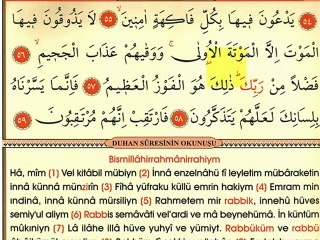 ﴿٥٤﴾ يَدْعُونَ فِيهَا بِكُلِّ فَاكِهَةٍ اٰمِنٖينَۙ ﴿٥٥﴾ لَا يَذُوقُونَ فٖيهَا
الْمَوْتَ اِلَّا الْمَوْتَةَ الْاُولٰىۚ وَوَقٰيهُمْ عَذَابَ الْجَحٖيمِۙ ﴿٥٦﴾
فَضْلًا مِنْ رَبِّكَۜ ذٰلِكَ هُوَ الْفَوْزُ الْعَظٖيمُ ﴿٥٧﴾ فَاِنَّمَا يَسَّرْنَاهُ
بِلِسَانِكَ لَعَلَّهُمْ يَتَذَكَّرُونَ ﴿٥٨﴾ فَارْتَقِبْ اِنَّهُمْ مُرْتَقِبُونَ ﴿٥٩﴾
DUHAN SÛRESİNİN OKUNUŞU
Bismillâhirrahmânirrahiym
Hâ, mîm (1) Vel kitâbil mübiyn (2) İnnâ enzelnâhü fî leyletim mübâraketin
innâ künnâ münzirîn (3) Fîhâ yüfraku küllü emrin hakiym (4) Emram min
ındinâ, innâ künnâ mürsiliyn (5) Rahmetem mir rabbik, innehû hüves
semiy'ul aliym (6) Rabbis semâvâti vel'ardi ve mâ beynehümâ. İn küntüm
mûkıniyn (7) Lâ ilâhe illâ hüve yuhyî ve yümiyt. Rabbükürm ve rabbü